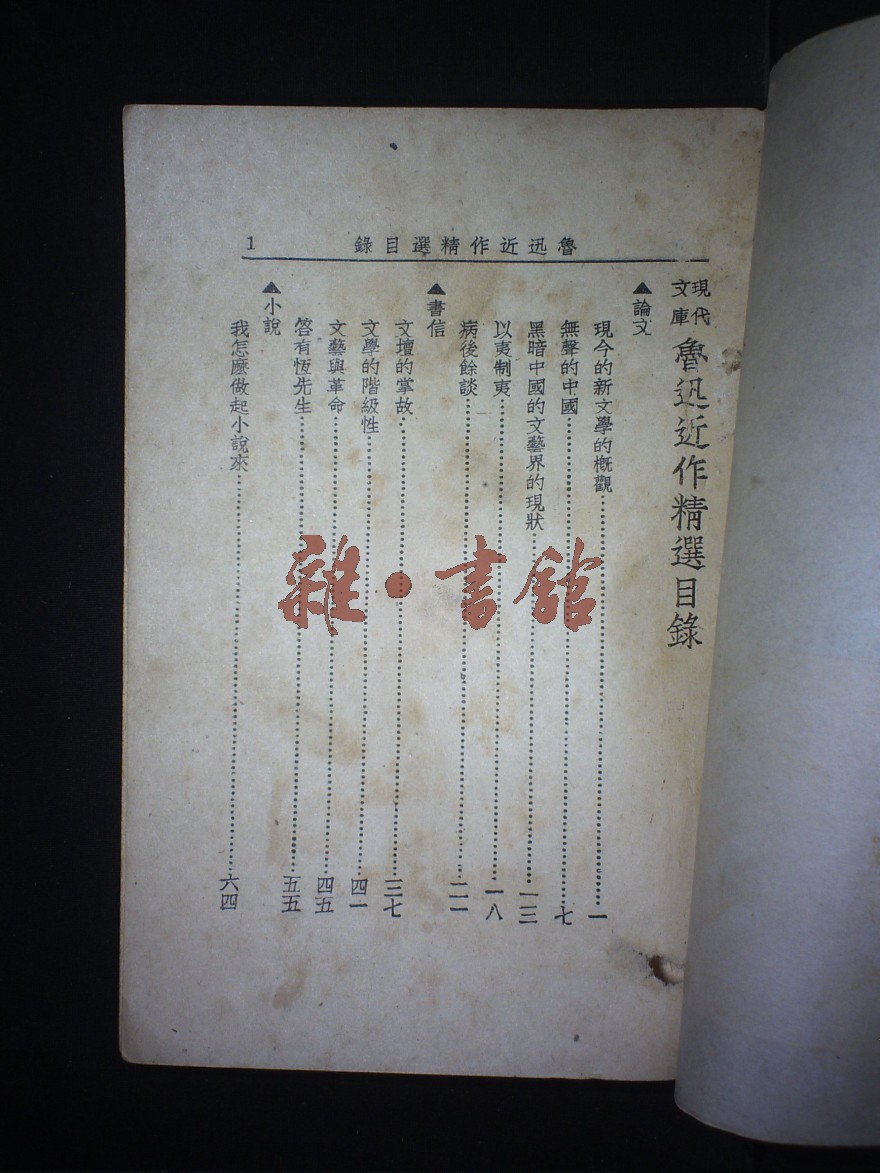 錄目選精作近迅魯
1
現代
文庫
魯迅近作精選目錄
▲論文
現今的新文學的概觀……一
無聲的中國……七
黑暗中國的文藝界的現狀……一三
以夷制夷……一八
病後餘談……二一
▲書信
文壇的掌故……三七
文學的階級性……四一
文藝與革命……四五
答有恆先生……五五
▲小說
我怎麽做起小說來……六四
雜·書館